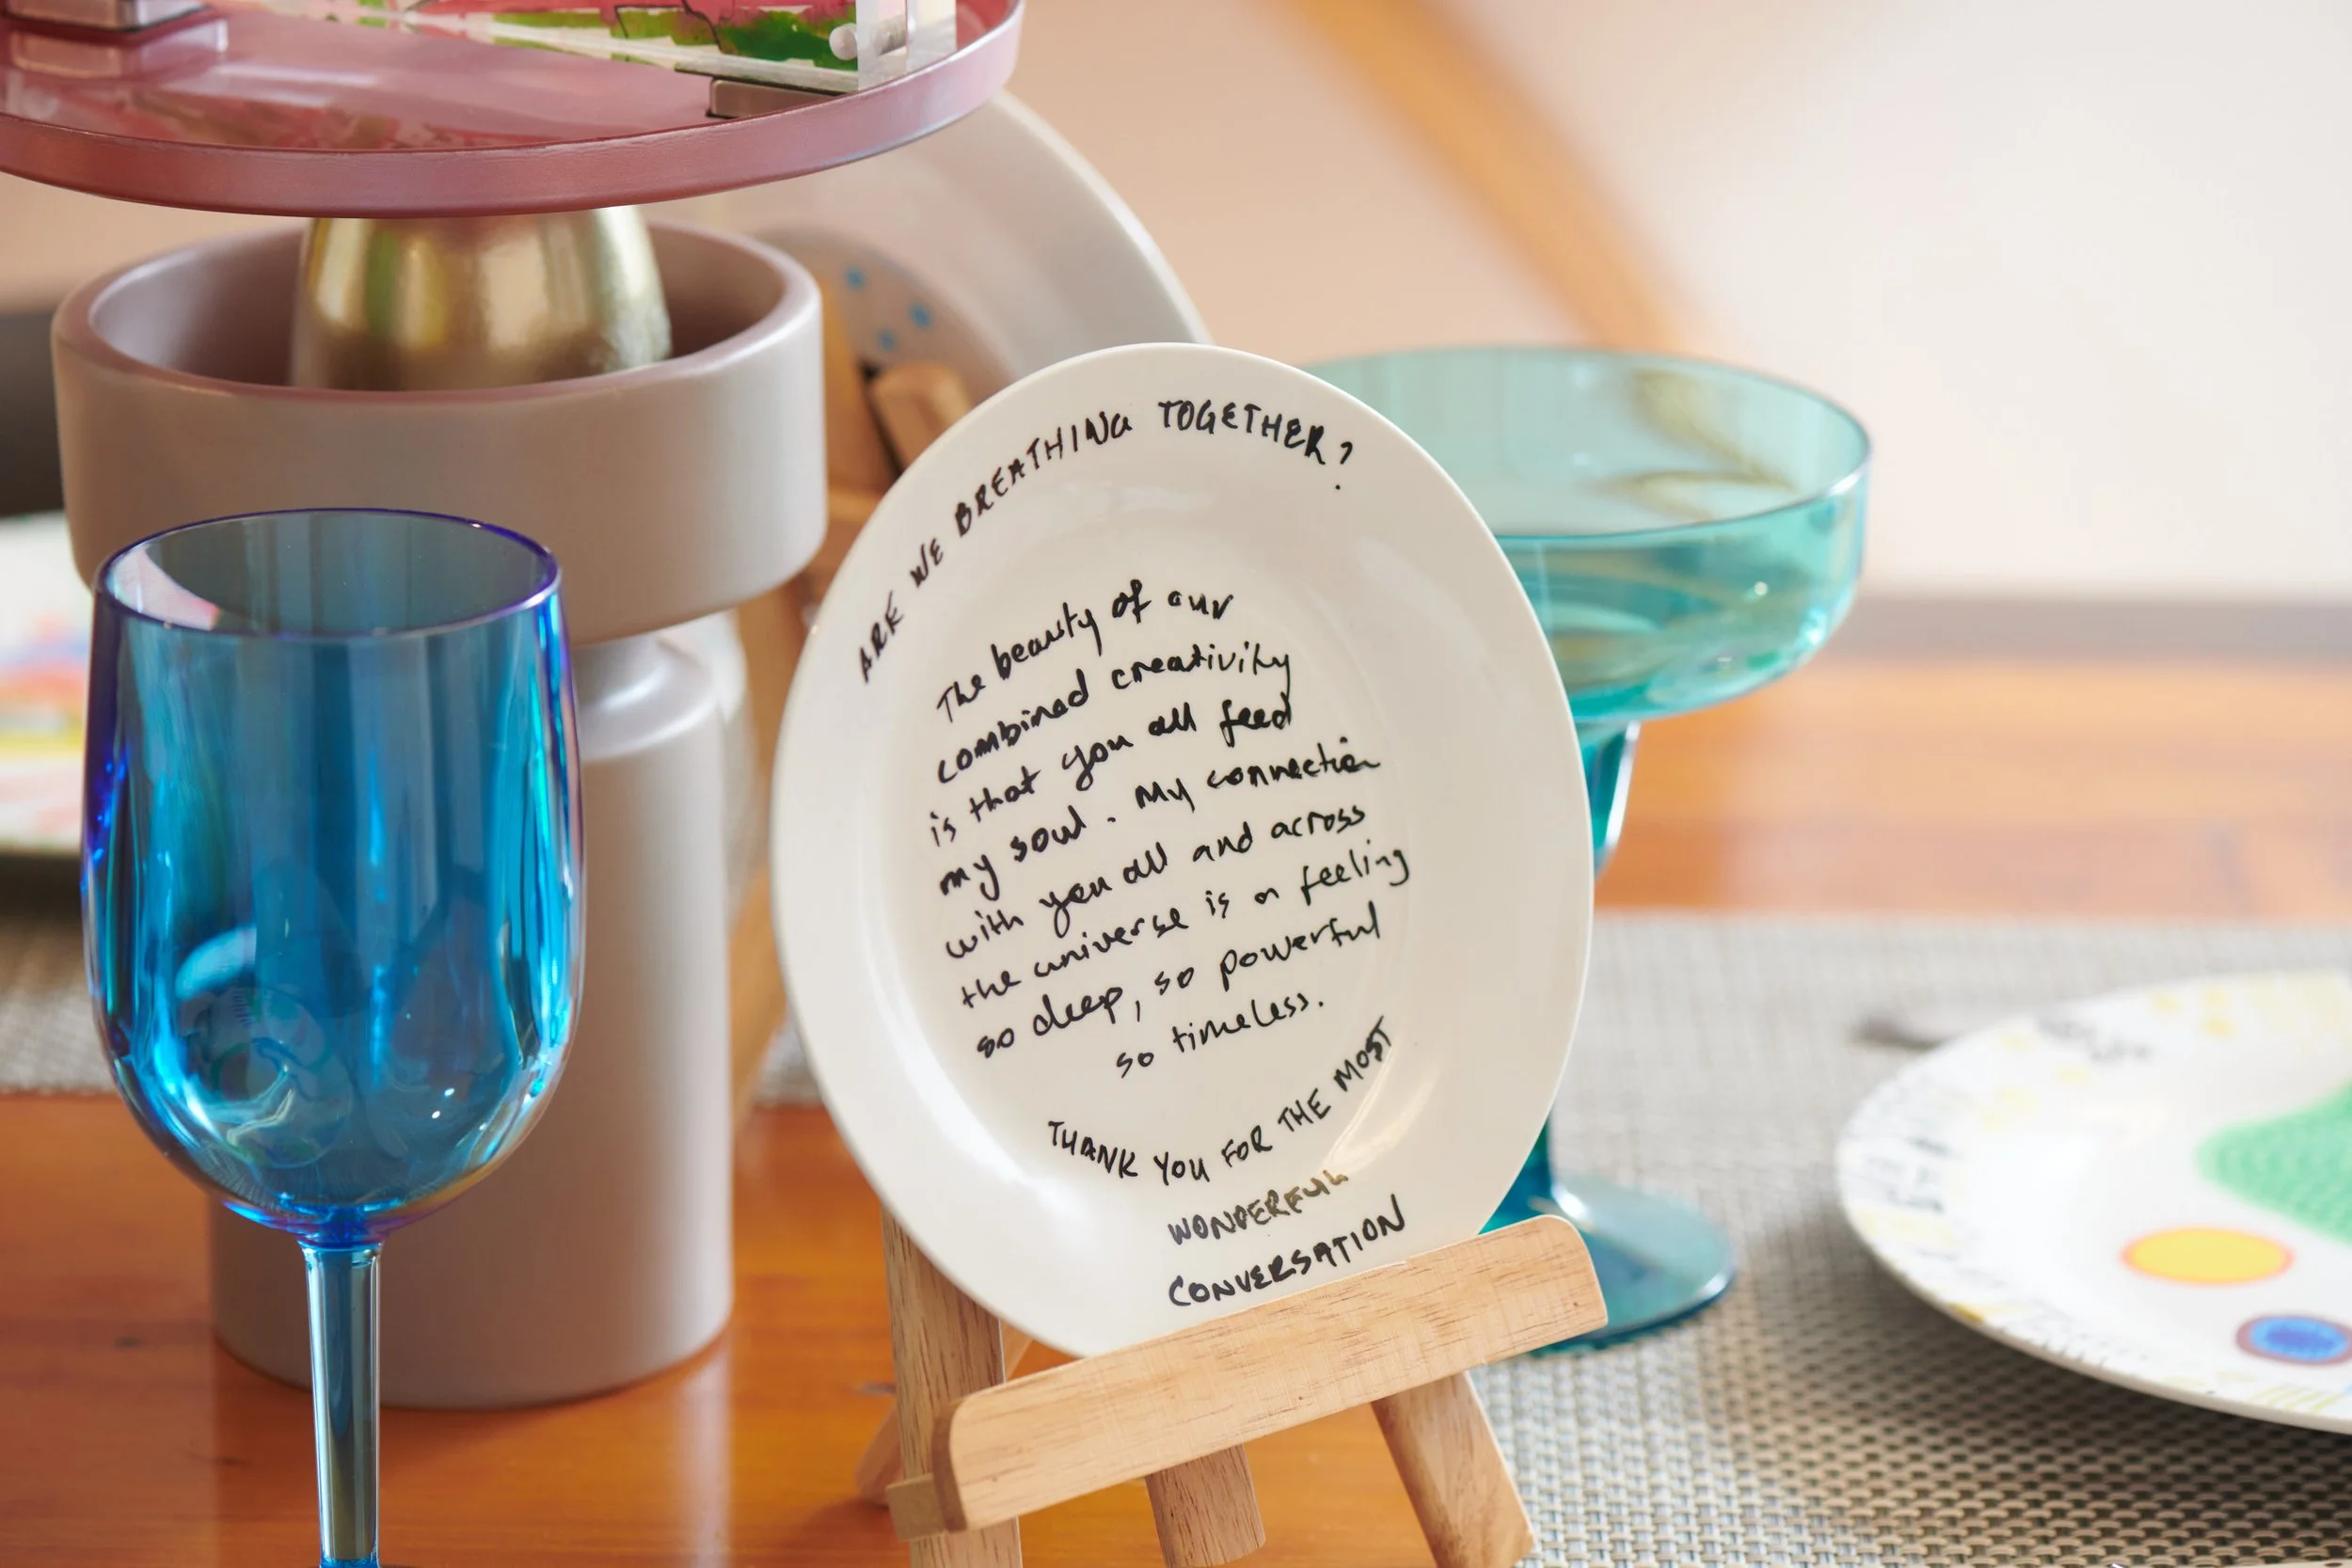 ARE WE BREATHING TOGETHER?
The beauty of our
combined creativity
is that you all feed
my soul. My connection
with you all and across
the universe is a feeling
so deep, so powerful
so timeless.
THANK YOU FOR THE MOST
WONDERFUL
CONVERSATION